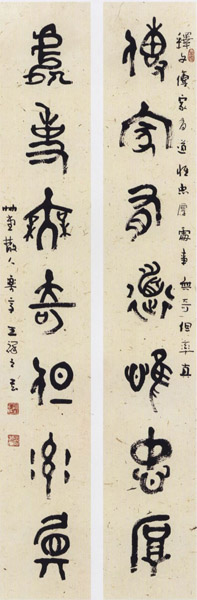 釋文傳家有道惟忠厚處事無奇但率真
傳家有道惟忠厚
處事無奇但率真
艸堂散人 王